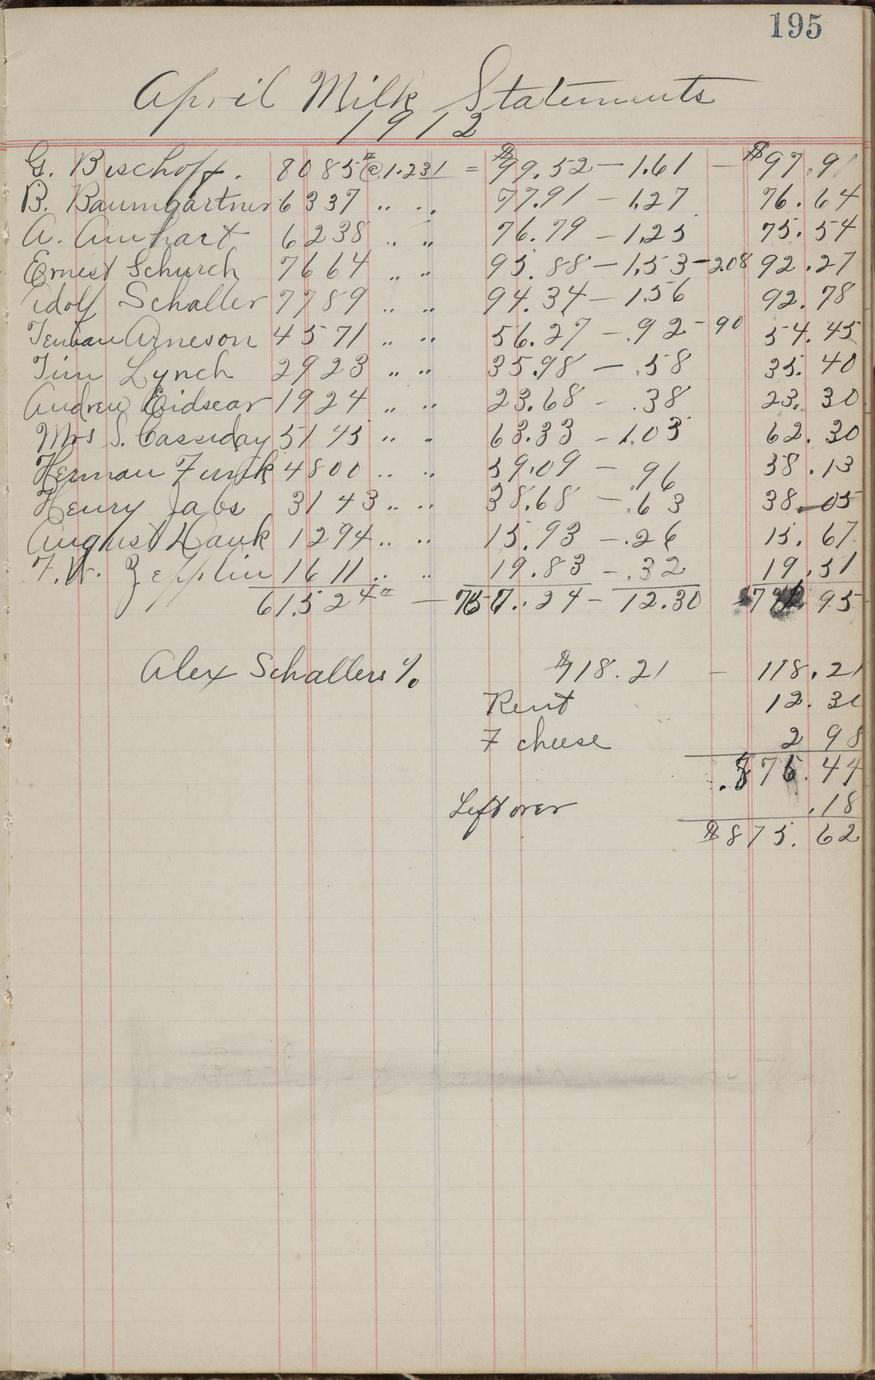 195
April Milk Statements
1912
G. Bischoff. 8085# @1.231 = $99.52 - 1.61 - $97.91
B. Baumgartner 6337 " " 77.91 - 1.27 76.64
A. Amhart 6238 " " 76.79 - 1.25 75.54
Ernest Schurch 7664 " " 95.88 - 1.53 - 2.08 92.27
Adolf Schaller 7789 " " 94.34 - 1.56 92.78
Arneson 4571 " " 56.27 - .92 - 90 54.45
Tim Lynch 2923 " " 35.98 - .58 35.40
Andrew Eidsear 1924 " " 23.68 - .38 23.30
Mrs S. Cassiday 5145 " " 63.33 - 1.03 62.30
Herman Funk 4800 " " 59.09 - .96 58.13
Henry Jabs 3143 " " 38.68 - .63 38.05
August Hank 1294 " " 15.93 - .26 15.67
F.W. Zepplin 1611 " " 19.83 - .32 19.51
61,524# - 757.24 - 12.30 95
Alex Schallers % $118.21 - 118.21
Rent 12.30
7 cheese 2 98
.44
Left over .18
$875.62